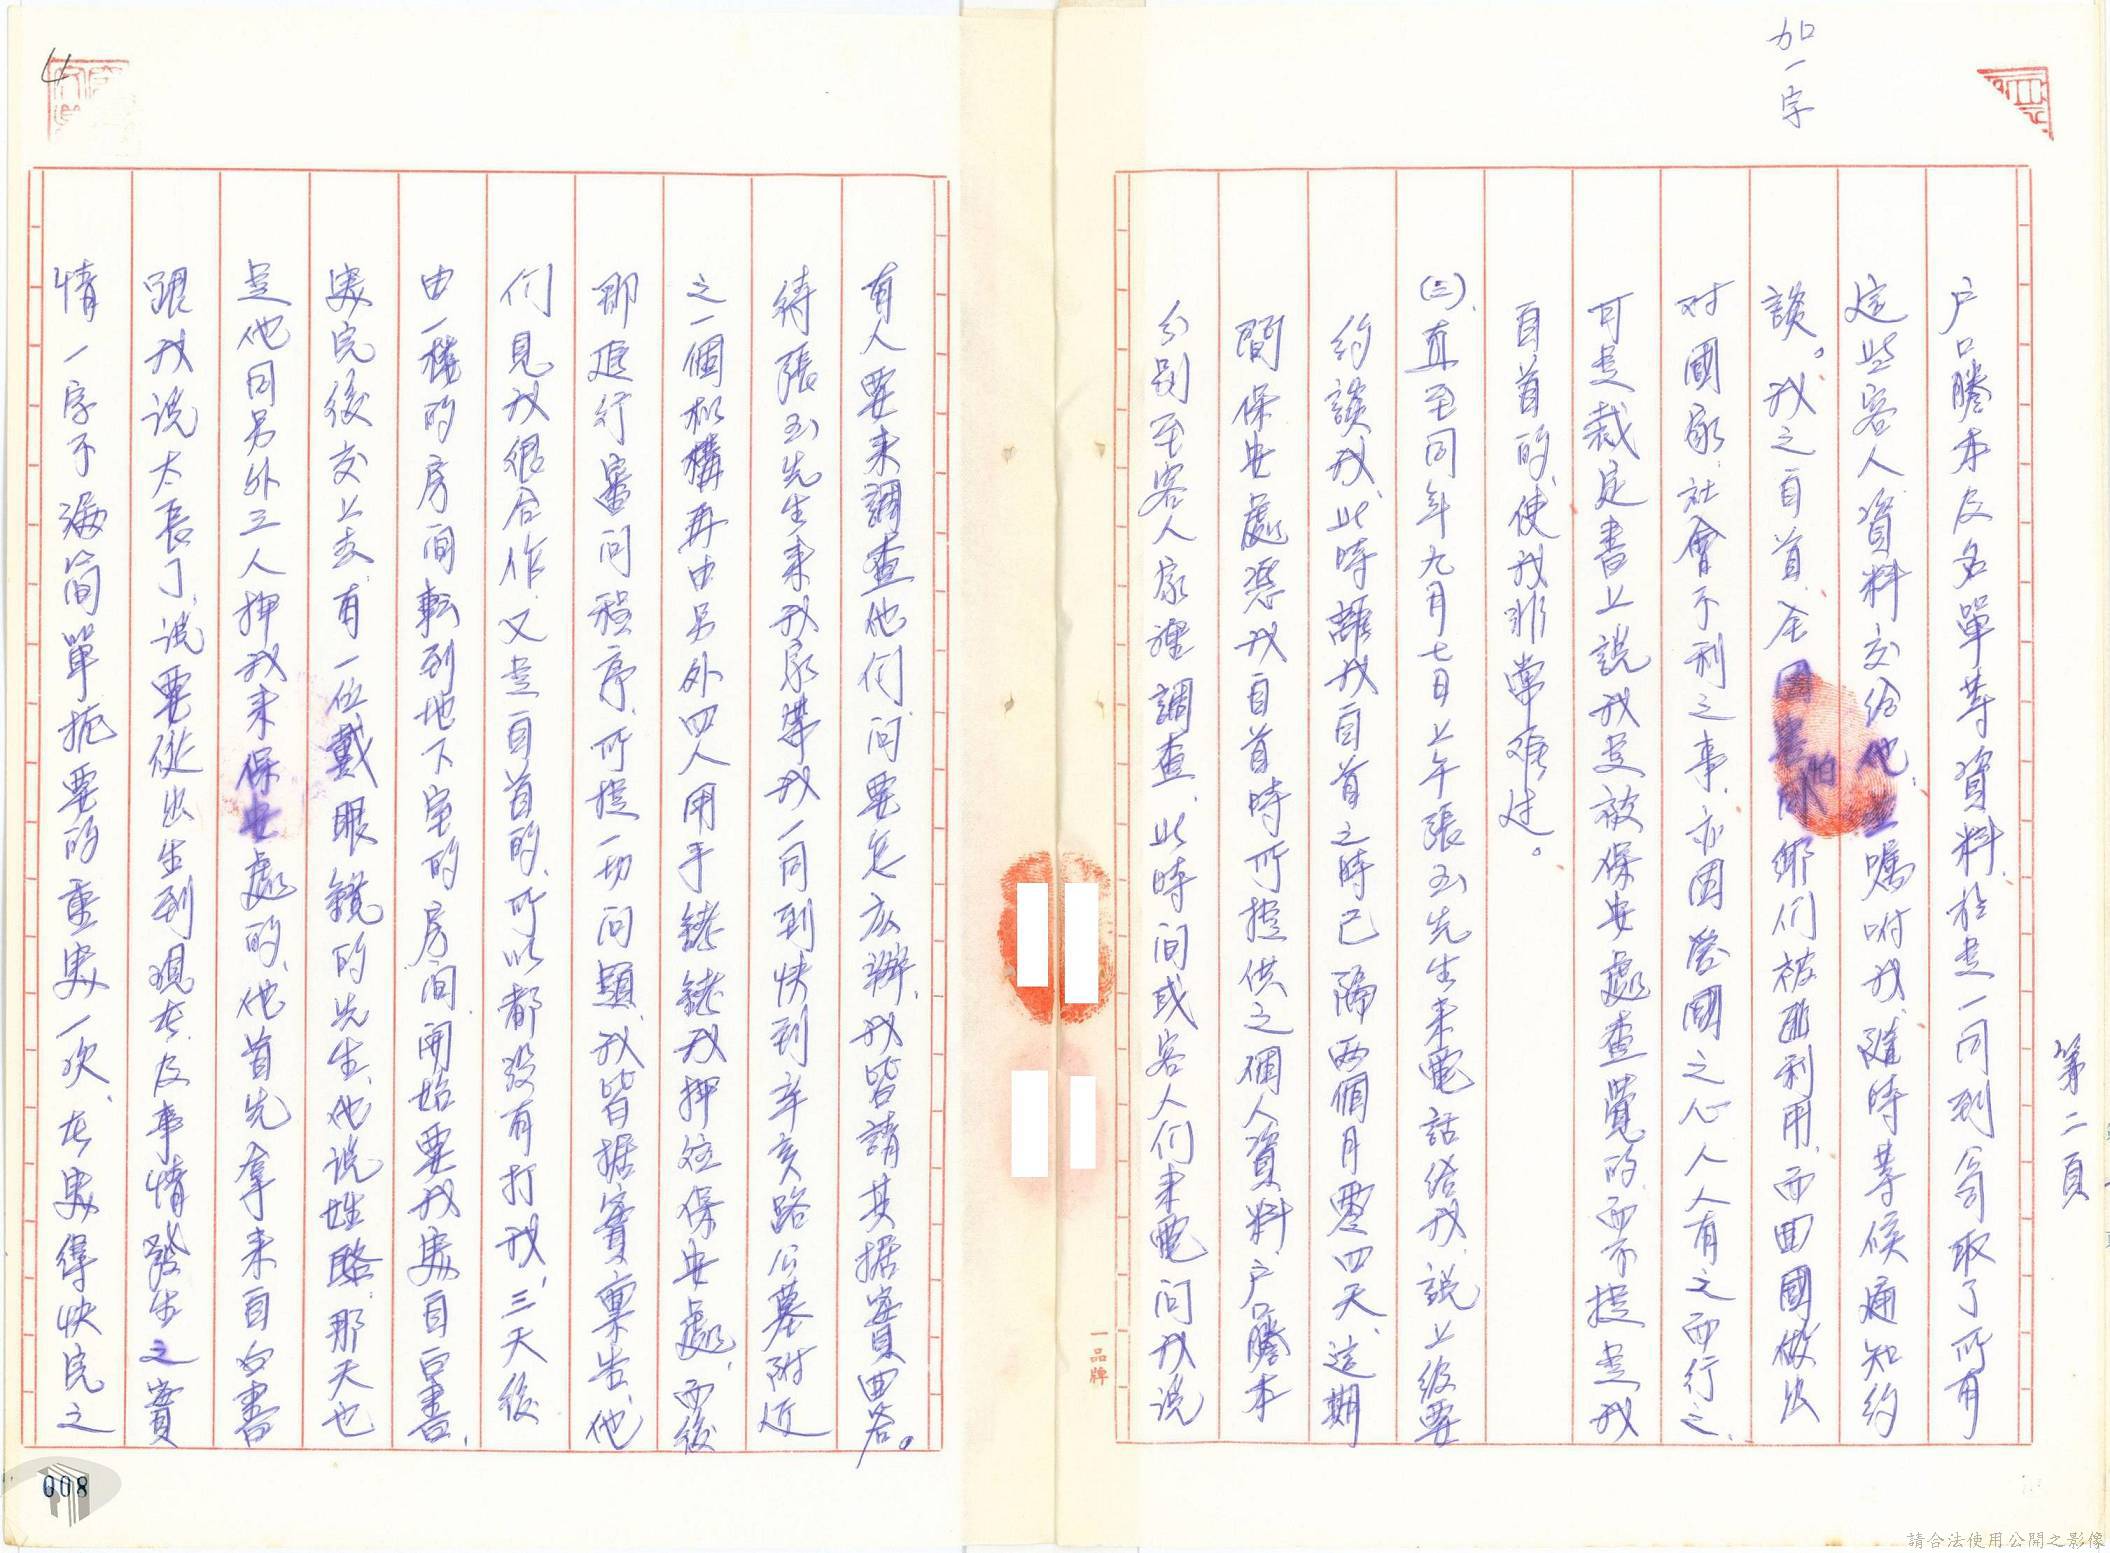 加一字
第二頁
户口謄本及名單等資料，於是一同到公司取了所有
這些客人資料交給他，並囑咐我，隨時等候通知約
談。我之自首，全因害怕鄉们被匪利用，而回國做出
对國家、社會不利之事，亦因愛國之心人人有之而行之，
可是裁定書上説我是被保安處查覺的，而不提是我
自首的，使我非常难过。
(三)、直至同年九月七日上午張玉先生来電話给我，説上级要
約談我，此時離我自首之時已隔两個月零四天，這期
間保安處憑我自首時所提供之個人資料，户口謄本
分别至客人家裡調查，此時间或客人们来電问我说
有人要来調查他们，问要怎庅辦，我皆請其据實回答。
待張玉先生来我家带我一同到快到辛亥路公墓附近
之一個机構再由另外四人用手銬銬我押送保安處，而後
即進行審问程序，所提一切问題，我皆据實稟告，他
们見我很合作，又是自首的，所以都没有打我，三天後
由一樓的房间転到地下室的房间，開始要我寫自白書，
寫完後交上去，有一位戴眼鏡的先生，他说姓駱，那天也
是他同另外三人押我来保安處的，他首先拿来自白書
跟我说太長了，说要從出生到現在，及事情發生之實
情一字不漏简單扼要的重寫一次，在寫得快完之
4
一品牌
008
請合法使用公開之影像